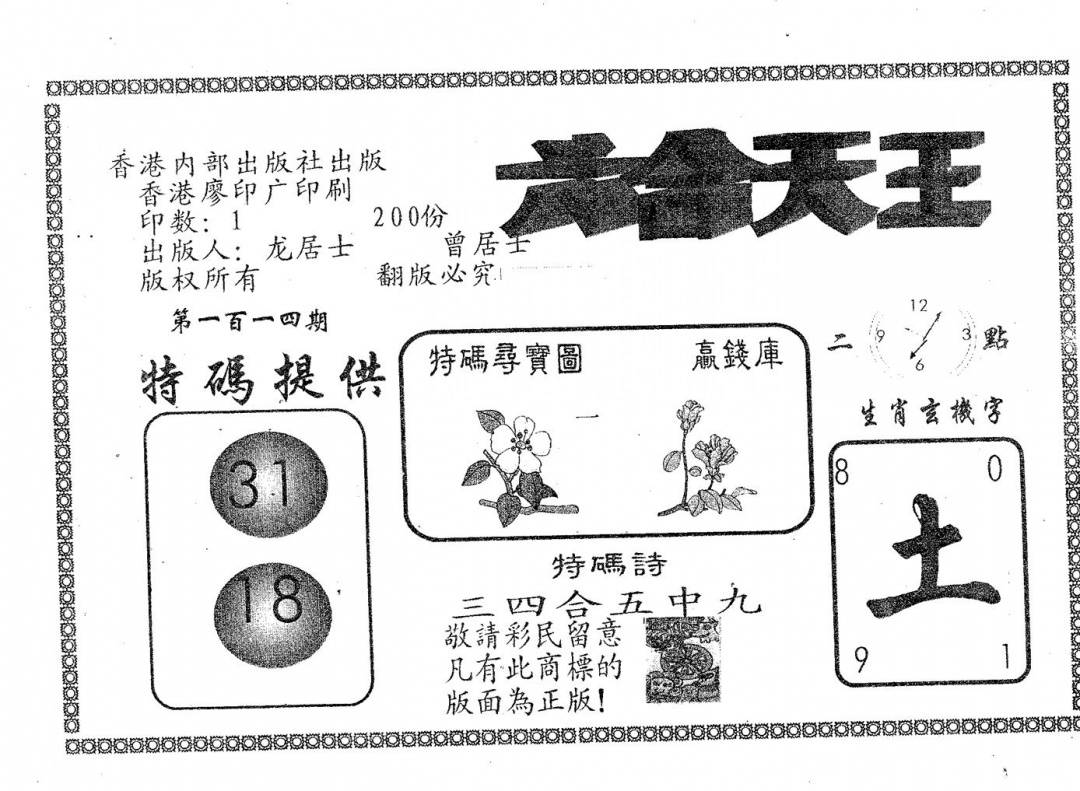 六合天王
香港内部出版社出版
香港廖印广印刷
印数：1 200份
出版人：龙居士 曾居士
版权所有 翻版必究
第一百一四期
特碼提供
31
18
特碼尋寶圖 贏錢庫
一
二 點
12
3
6
9
生肖玄機字
8 0
土
9 1
特碼詩
三四合五中九
敬請彩民留意
凡有此商標的
版面為正版！